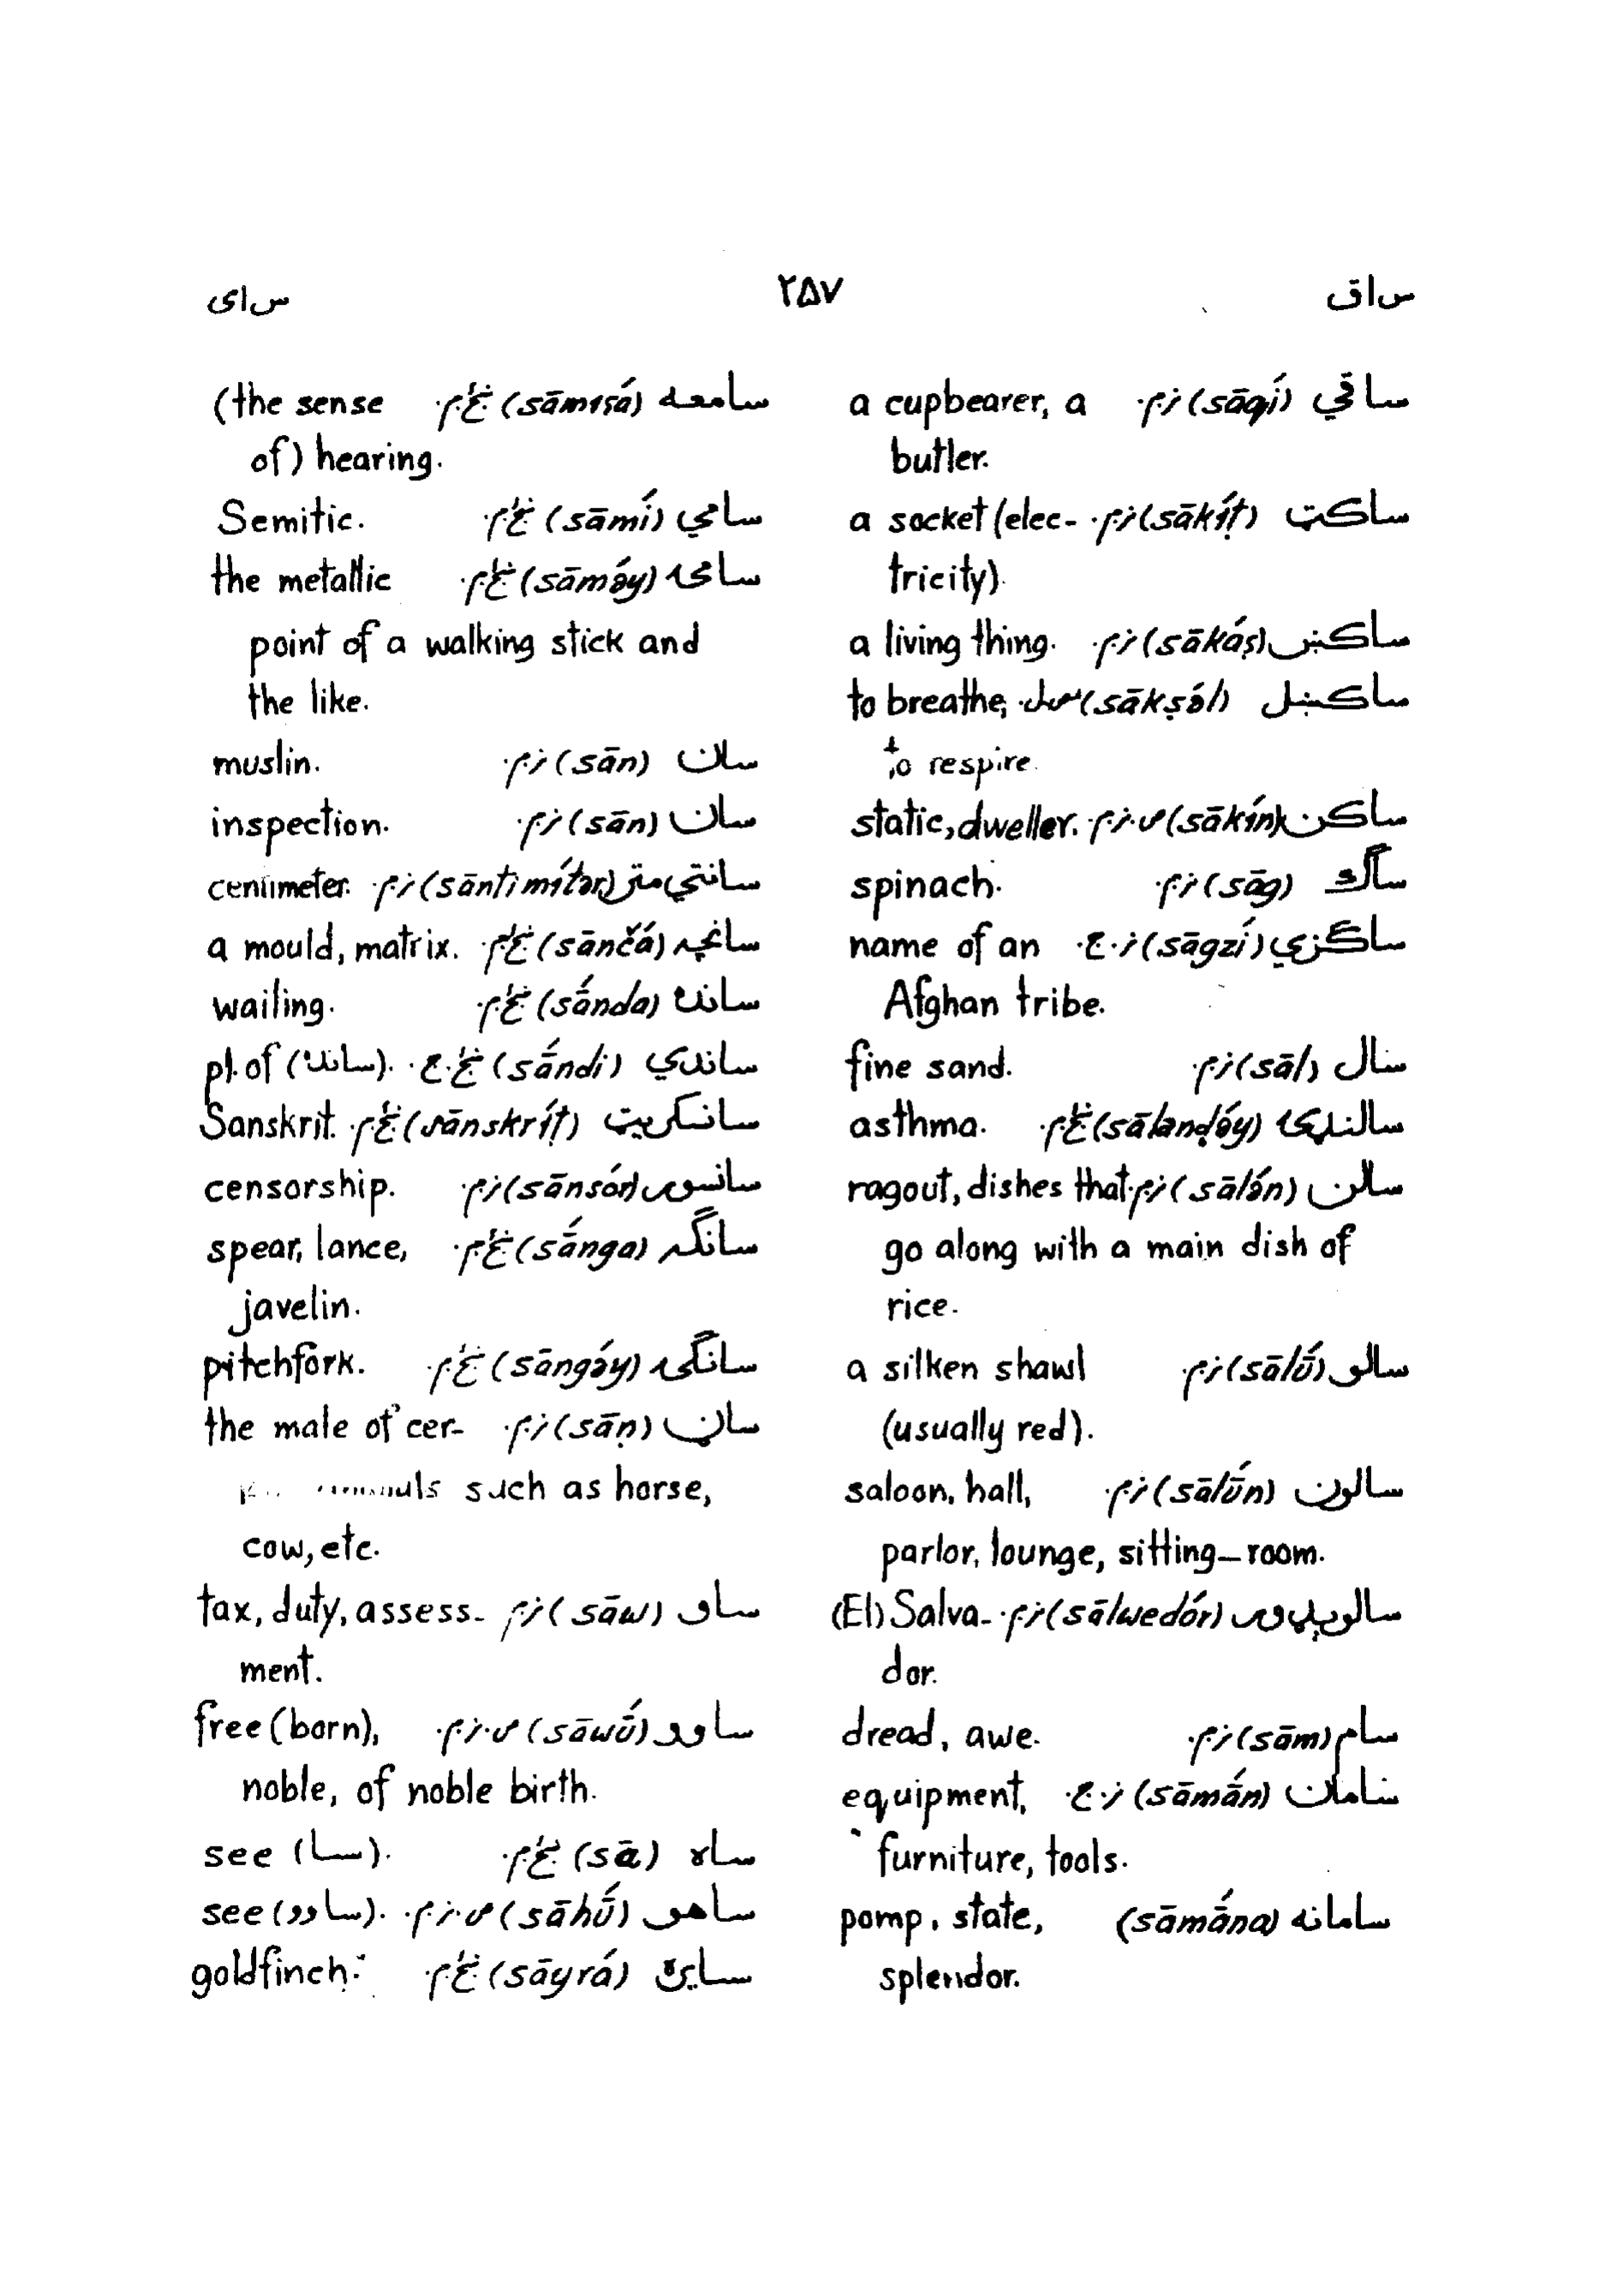 ساق ۲۵۷ سای
ساقي (sāqí) نر.م. a cupbearer, a
butler.
ساکټ (sākíṭ) نر.م. a socket (elec-
tricity)
ساکښ (sākáṣ) نر.م. a living thing.
ساکښل (sākṣə́l) to breathe,
to respire.
ساکن (sākín) ص.نر.م. static, dweller.
ساګ (sāg) نر.م. spinach.
ساګزي (sāgzí) نر.ج. name of an
Afghan tribe.
سال (sāl) نر.م. fine sand.
سالنډۍ (sālanḍə́y) ښځ.م. asthma.
سالن (sālə́n) نر.م. ragout, dishes that
go along with a main dish of
rice.
سالو (sālū́) نر.م. a silken shawl
(usually red).
سالون (sālū́n) نر.م. saloon, hall,
parlor, lounge, sitting-room.
سالوېډور (sālwedór) نر.م. (El) Salva-
dor.
سام (sām) نر.م. dread, awe.
سامان (sāmā́n) نر.ج. equipment,
furniture, tools.
سامانه (sāmā́na) pomp, state,
splendor.
سامعه (sāmɪʂá) ښځ.م. (the sense
of) hearing.
سامي (sāmí) ښځ.م. Semitic.
سامۍ (sāmə́y) ښځ.م. the metallic
point of a walking stick and
the like.
سان (sān) نر.م. muslin.
سان (sān) نر.م. inspection.
سانتي متر (sāntimítər) نر.م. centimeter.
سانچه (sānčá) ښځ.م. a mould, matrix.
سانده (sā́nda) ښځ.م. wailing.
ساندې (sā́ndi) ښځ.ج. pl. of (سانده).
سانسکریټ (sānskríṭ) ښځ.م. Sanskrit.
سانسور (sānsór) نر.م. censorship.
سانګه (sā́nga) ښځ.م. spear, lance,
javelin.
سانګۍ (sāngə́y) ښځ.م. pitchfork.
ساڼ (sāṇ) نر.م. the male of cer-
such as horse,
cow, etc.
ساو (sāw) نر.م. tax, duty, assess-
ment.
ساوو (sāwū́) ص.نر.م. free (born),
noble, of noble birth.
ساه (sā) ښځ.م. see (سا).
ساهو (sāhū́) ص.نر.م. see (ساوو).
سایره (sāyrá) ښځ.م. goldfinch.